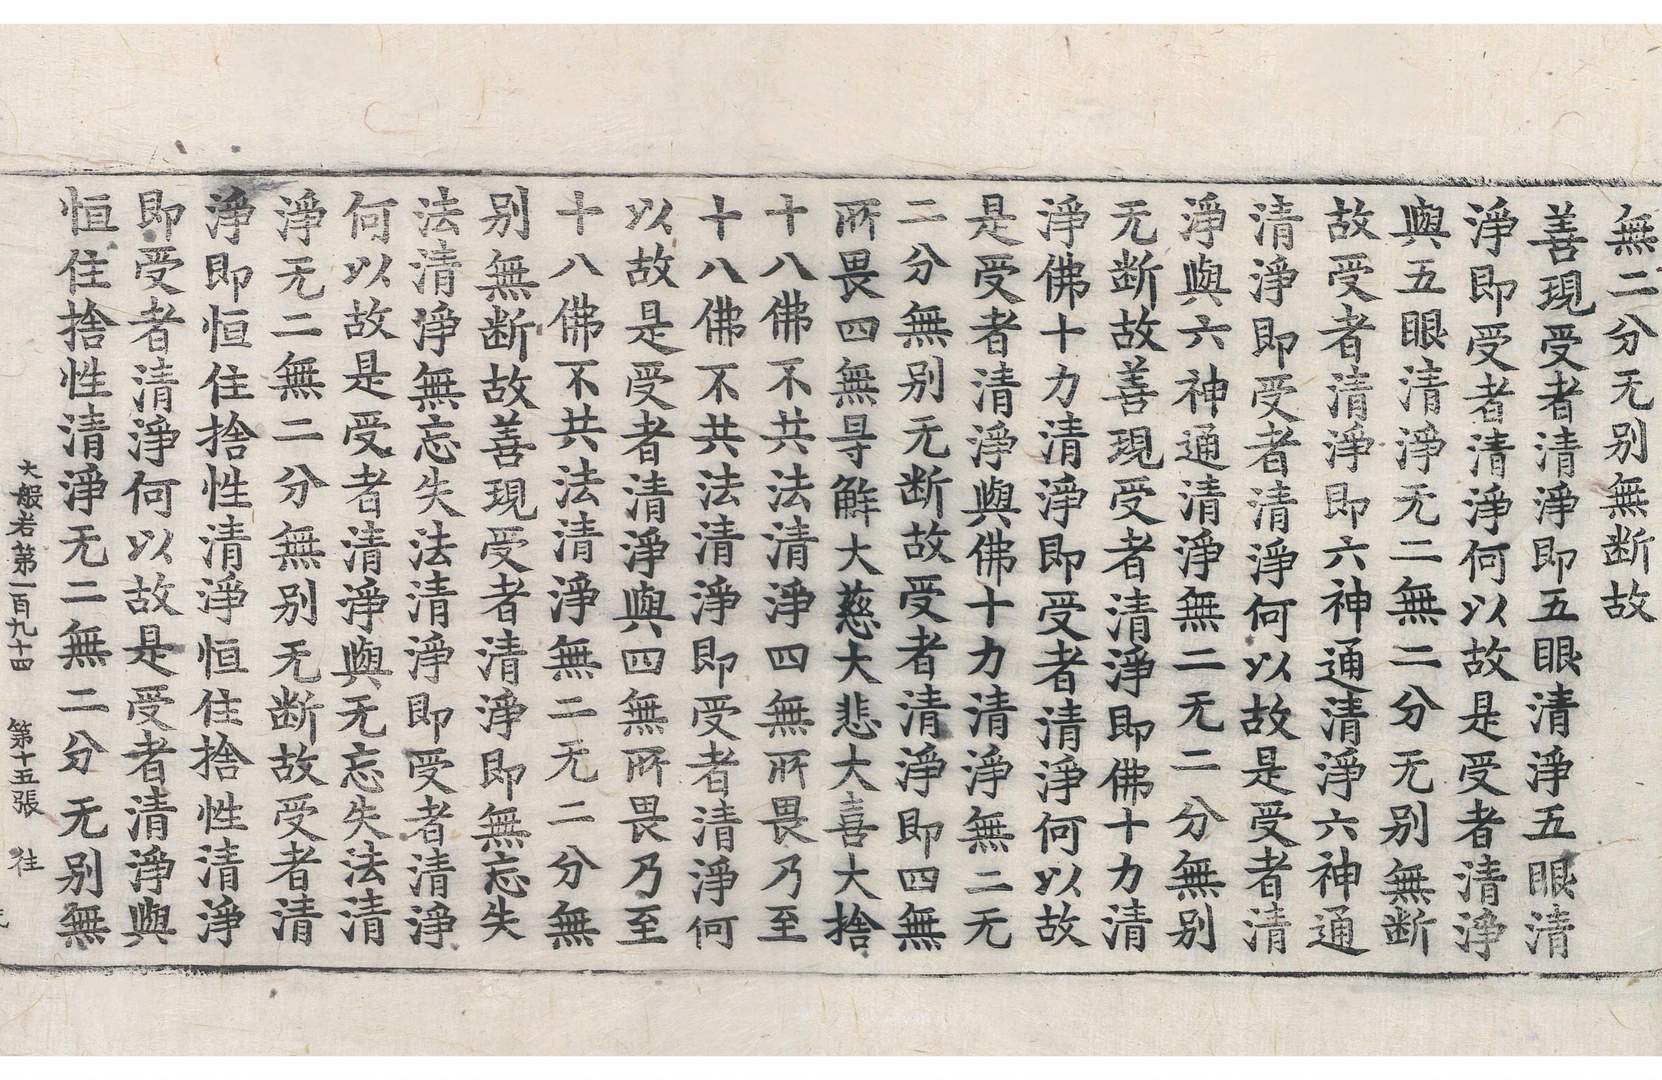 無二分无别無断故
善現受者清淨即五眼清淨五眼清
淨即受者清淨何以故是受者清淨
與五眼清淨无二無二分无别無断
故受者清淨即六神通清淨六神通
清淨即受者清淨何以故是受者清
淨與六神通清淨無二无二分無别
无断故善現受者清淨即佛十力清
淨佛十力清淨即受者清淨何以故
是受者清淨與佛十力清淨無二无
二分無别无断故受者清淨即四無
所畏四無㝵解大慈大悲大喜大捨
十八佛不共法清淨四無所畏乃至
十八佛不共法清淨即受者清淨何
以故是受者清淨與四無所畏乃至
十八佛不共法清淨無二无二分無
别無断故善現受者清淨即無忘失
法清淨無忘失法清淨即受者清淨
何以故是受者清淨與无忘失法清
淨无二無二分無别无断故受者清
淨即恒住捨性清淨恒住捨性清淨
即受者清淨何以故是受者清淨與
恒住捨性清淨无二無二分无别無
大般若第一百九十四 第十五張 往